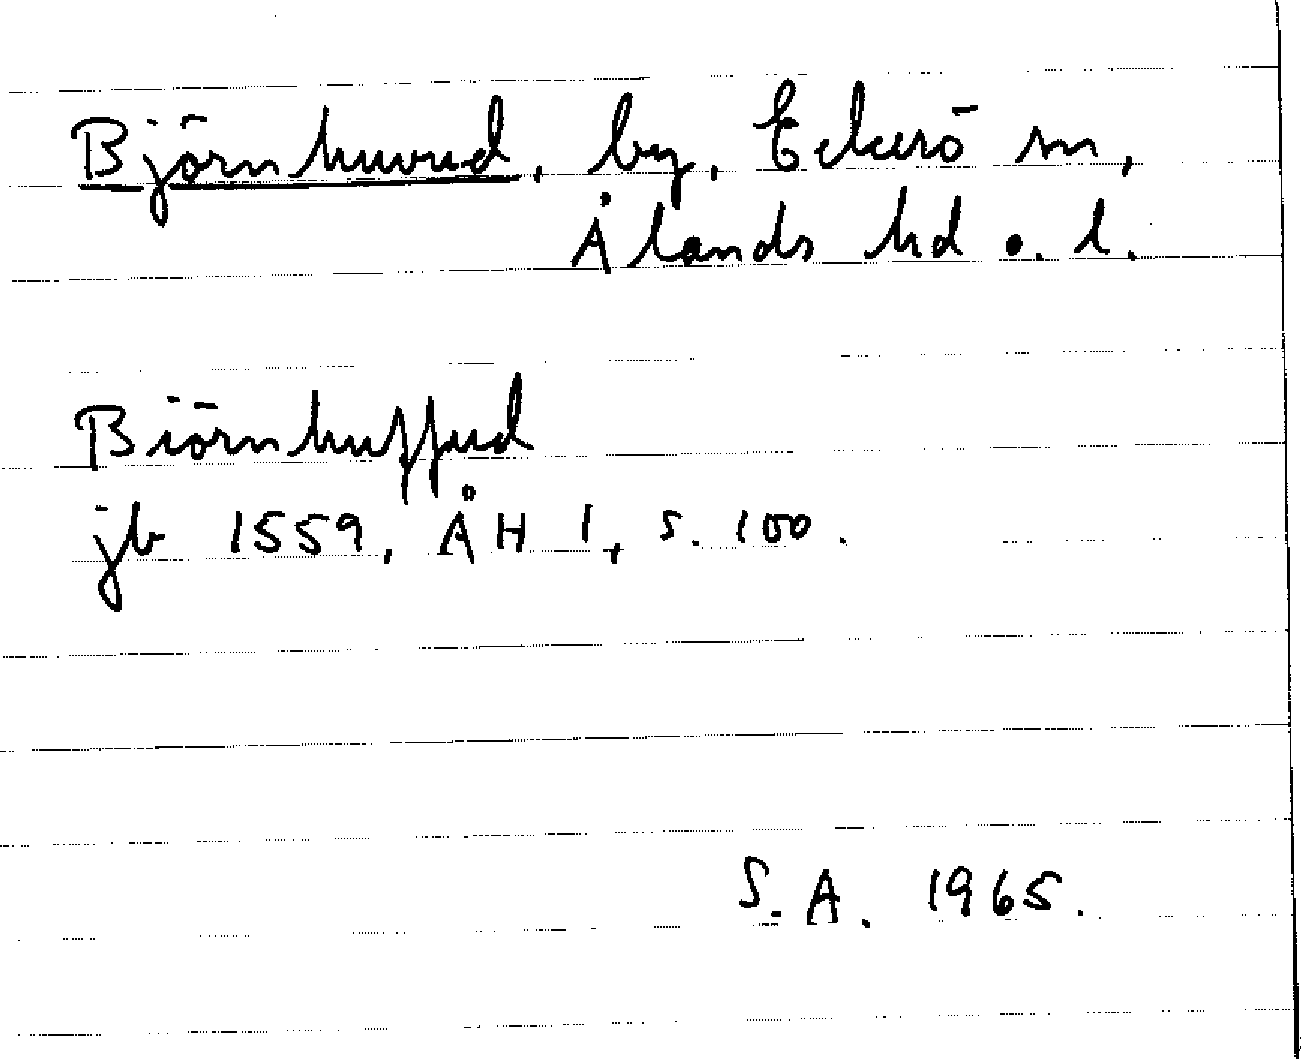 Björnhuvud, by, Eckerö sn,
Ålands hd o. l.
Biörnhuffud
jb 1559, ÅH 1, s. 100.
S. A. 1965.